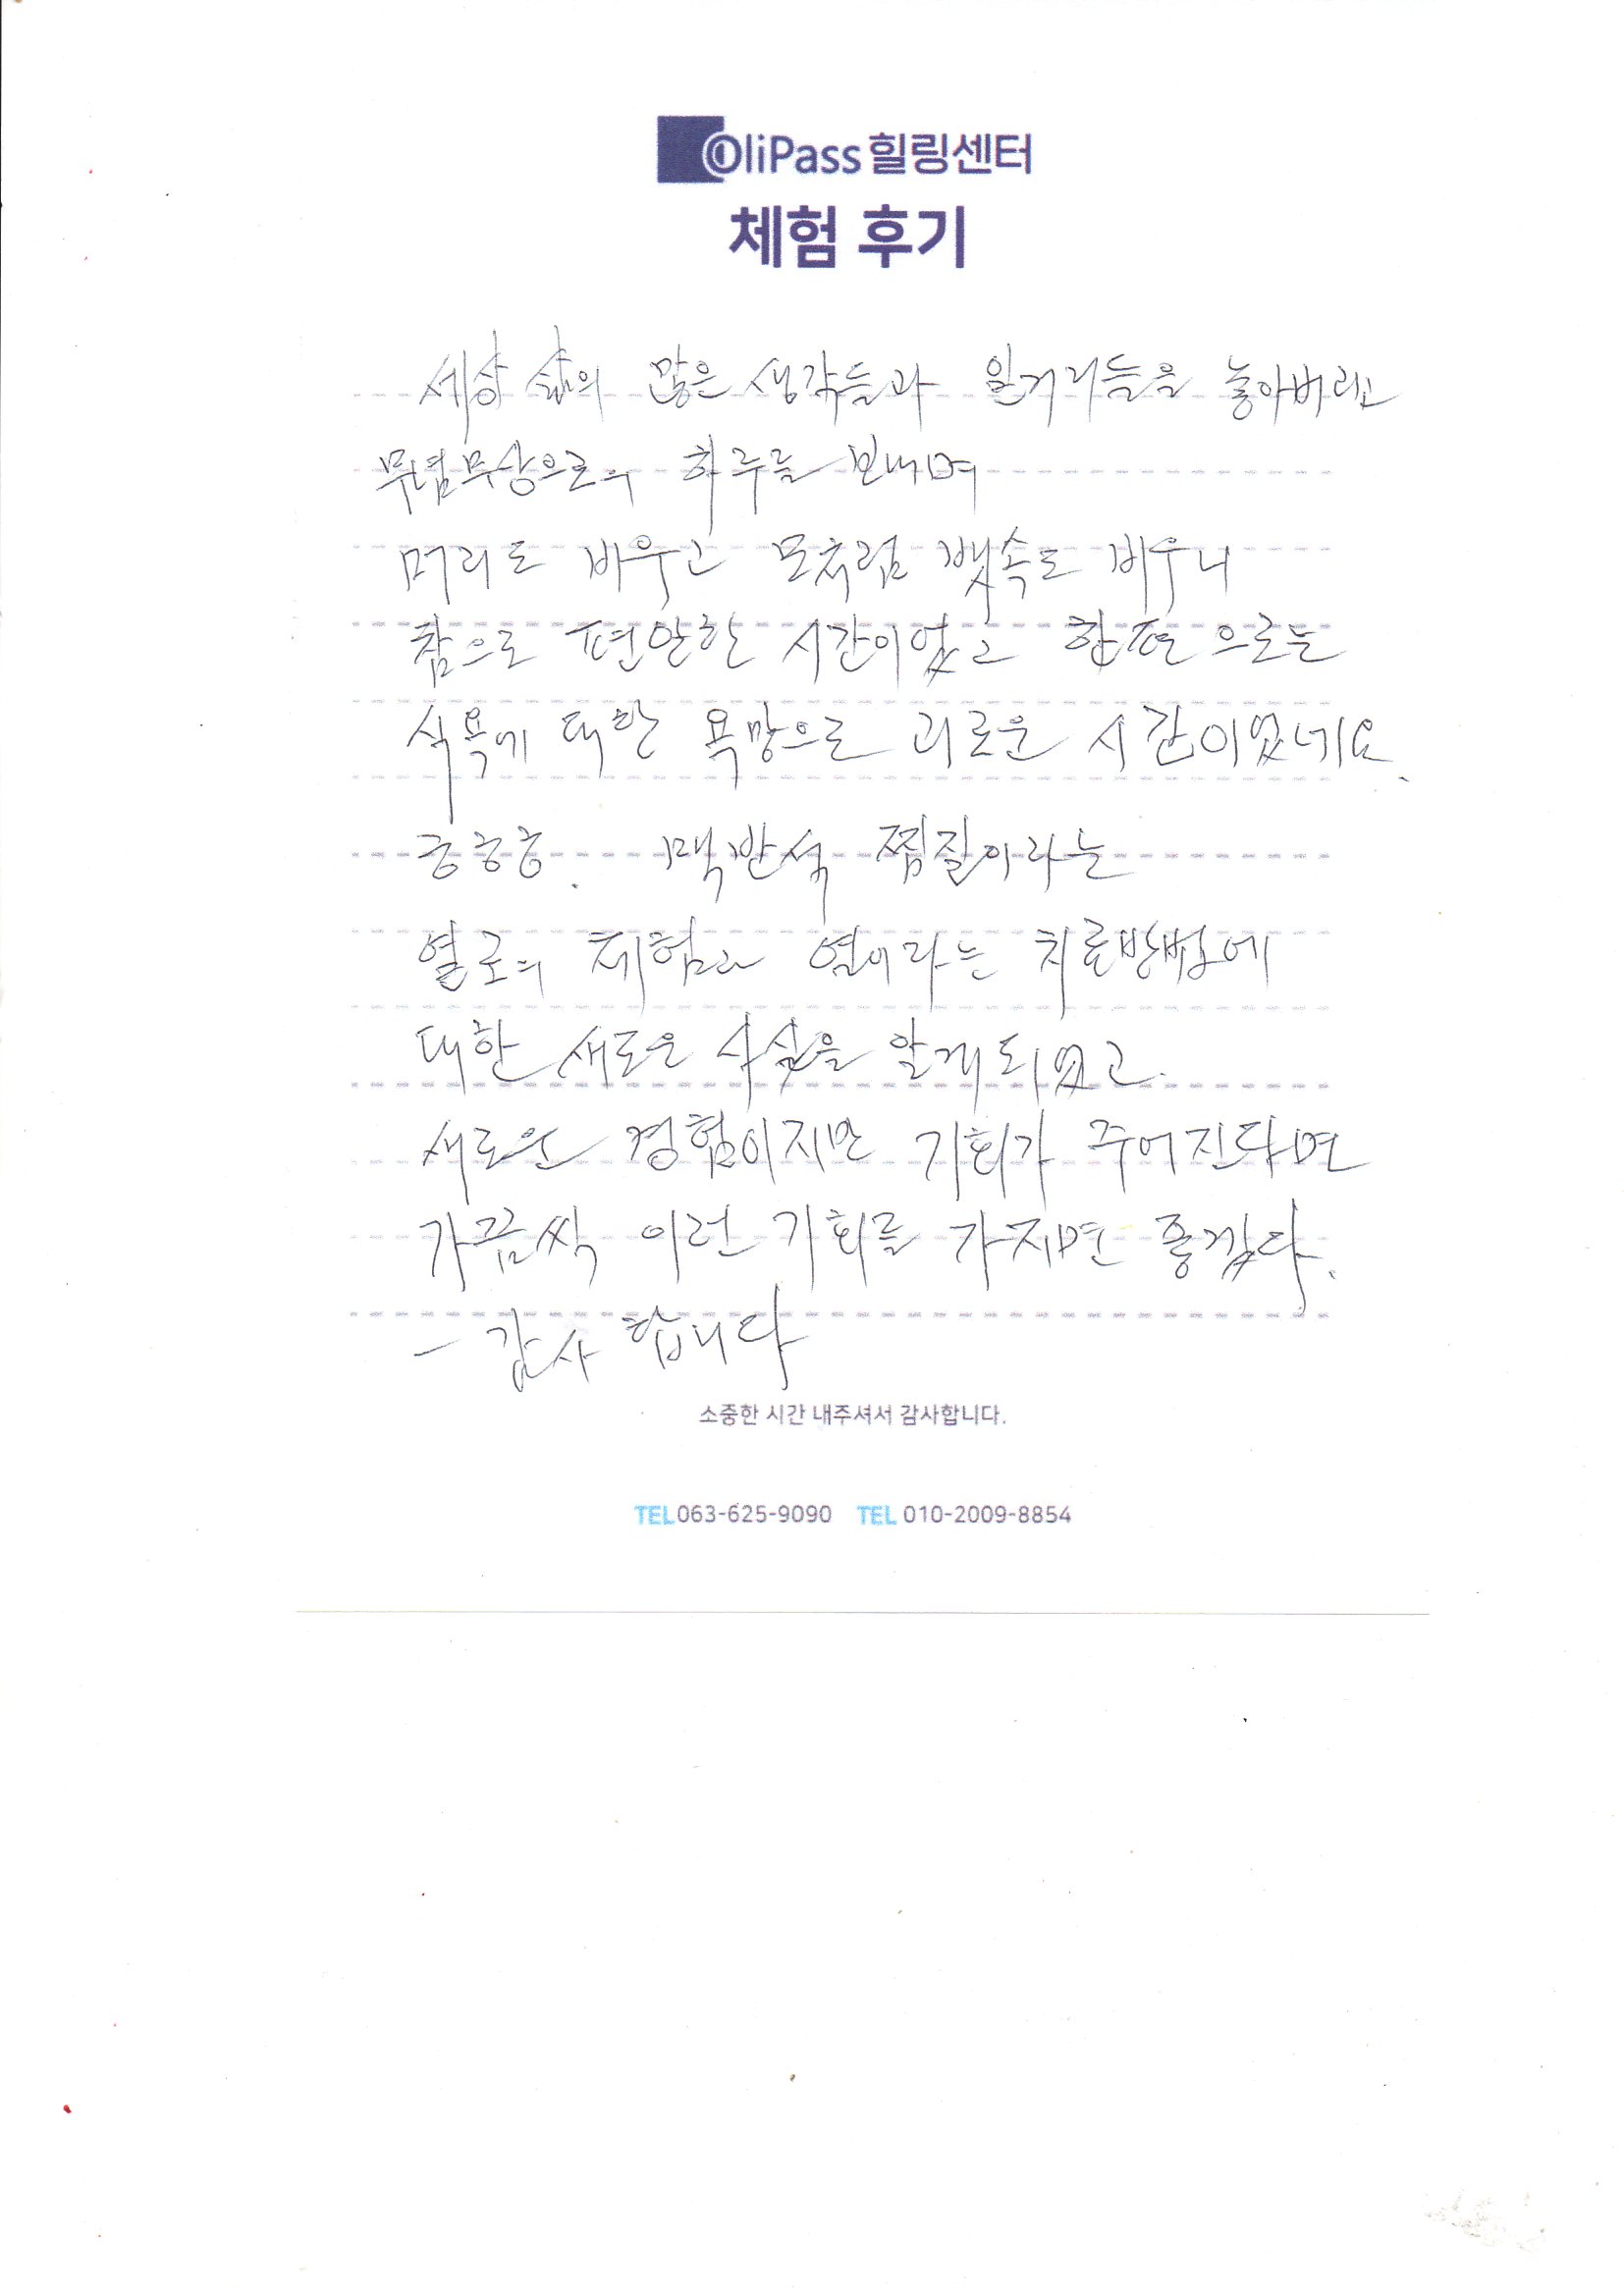 OliPass 힐링센터
체험 후기
세상 삶의 많은 생각들과 일거리들을 놓아버리고
무념무상으로의 하루를 보내며
머리도 비우고 모처럼 뱃속도 비우니
참으로 편안한 시간이었고 한편으로는
식욕에 대한 욕망으로 괴로운 시간이었네요.
맥반석 찜질이라는
열로의 체험과 열이라는 치료방법에
대한 새로운 사실을 알게 되었고.
새로운 경험이지만 기회가 주어진다면
가끔씩 이런 기회를 가지면 좋겠다.
- 감사합니다
소중한 시간 내주셔서 감사합니다.
TEL 063-625-9090 TEL 010-2009-8854